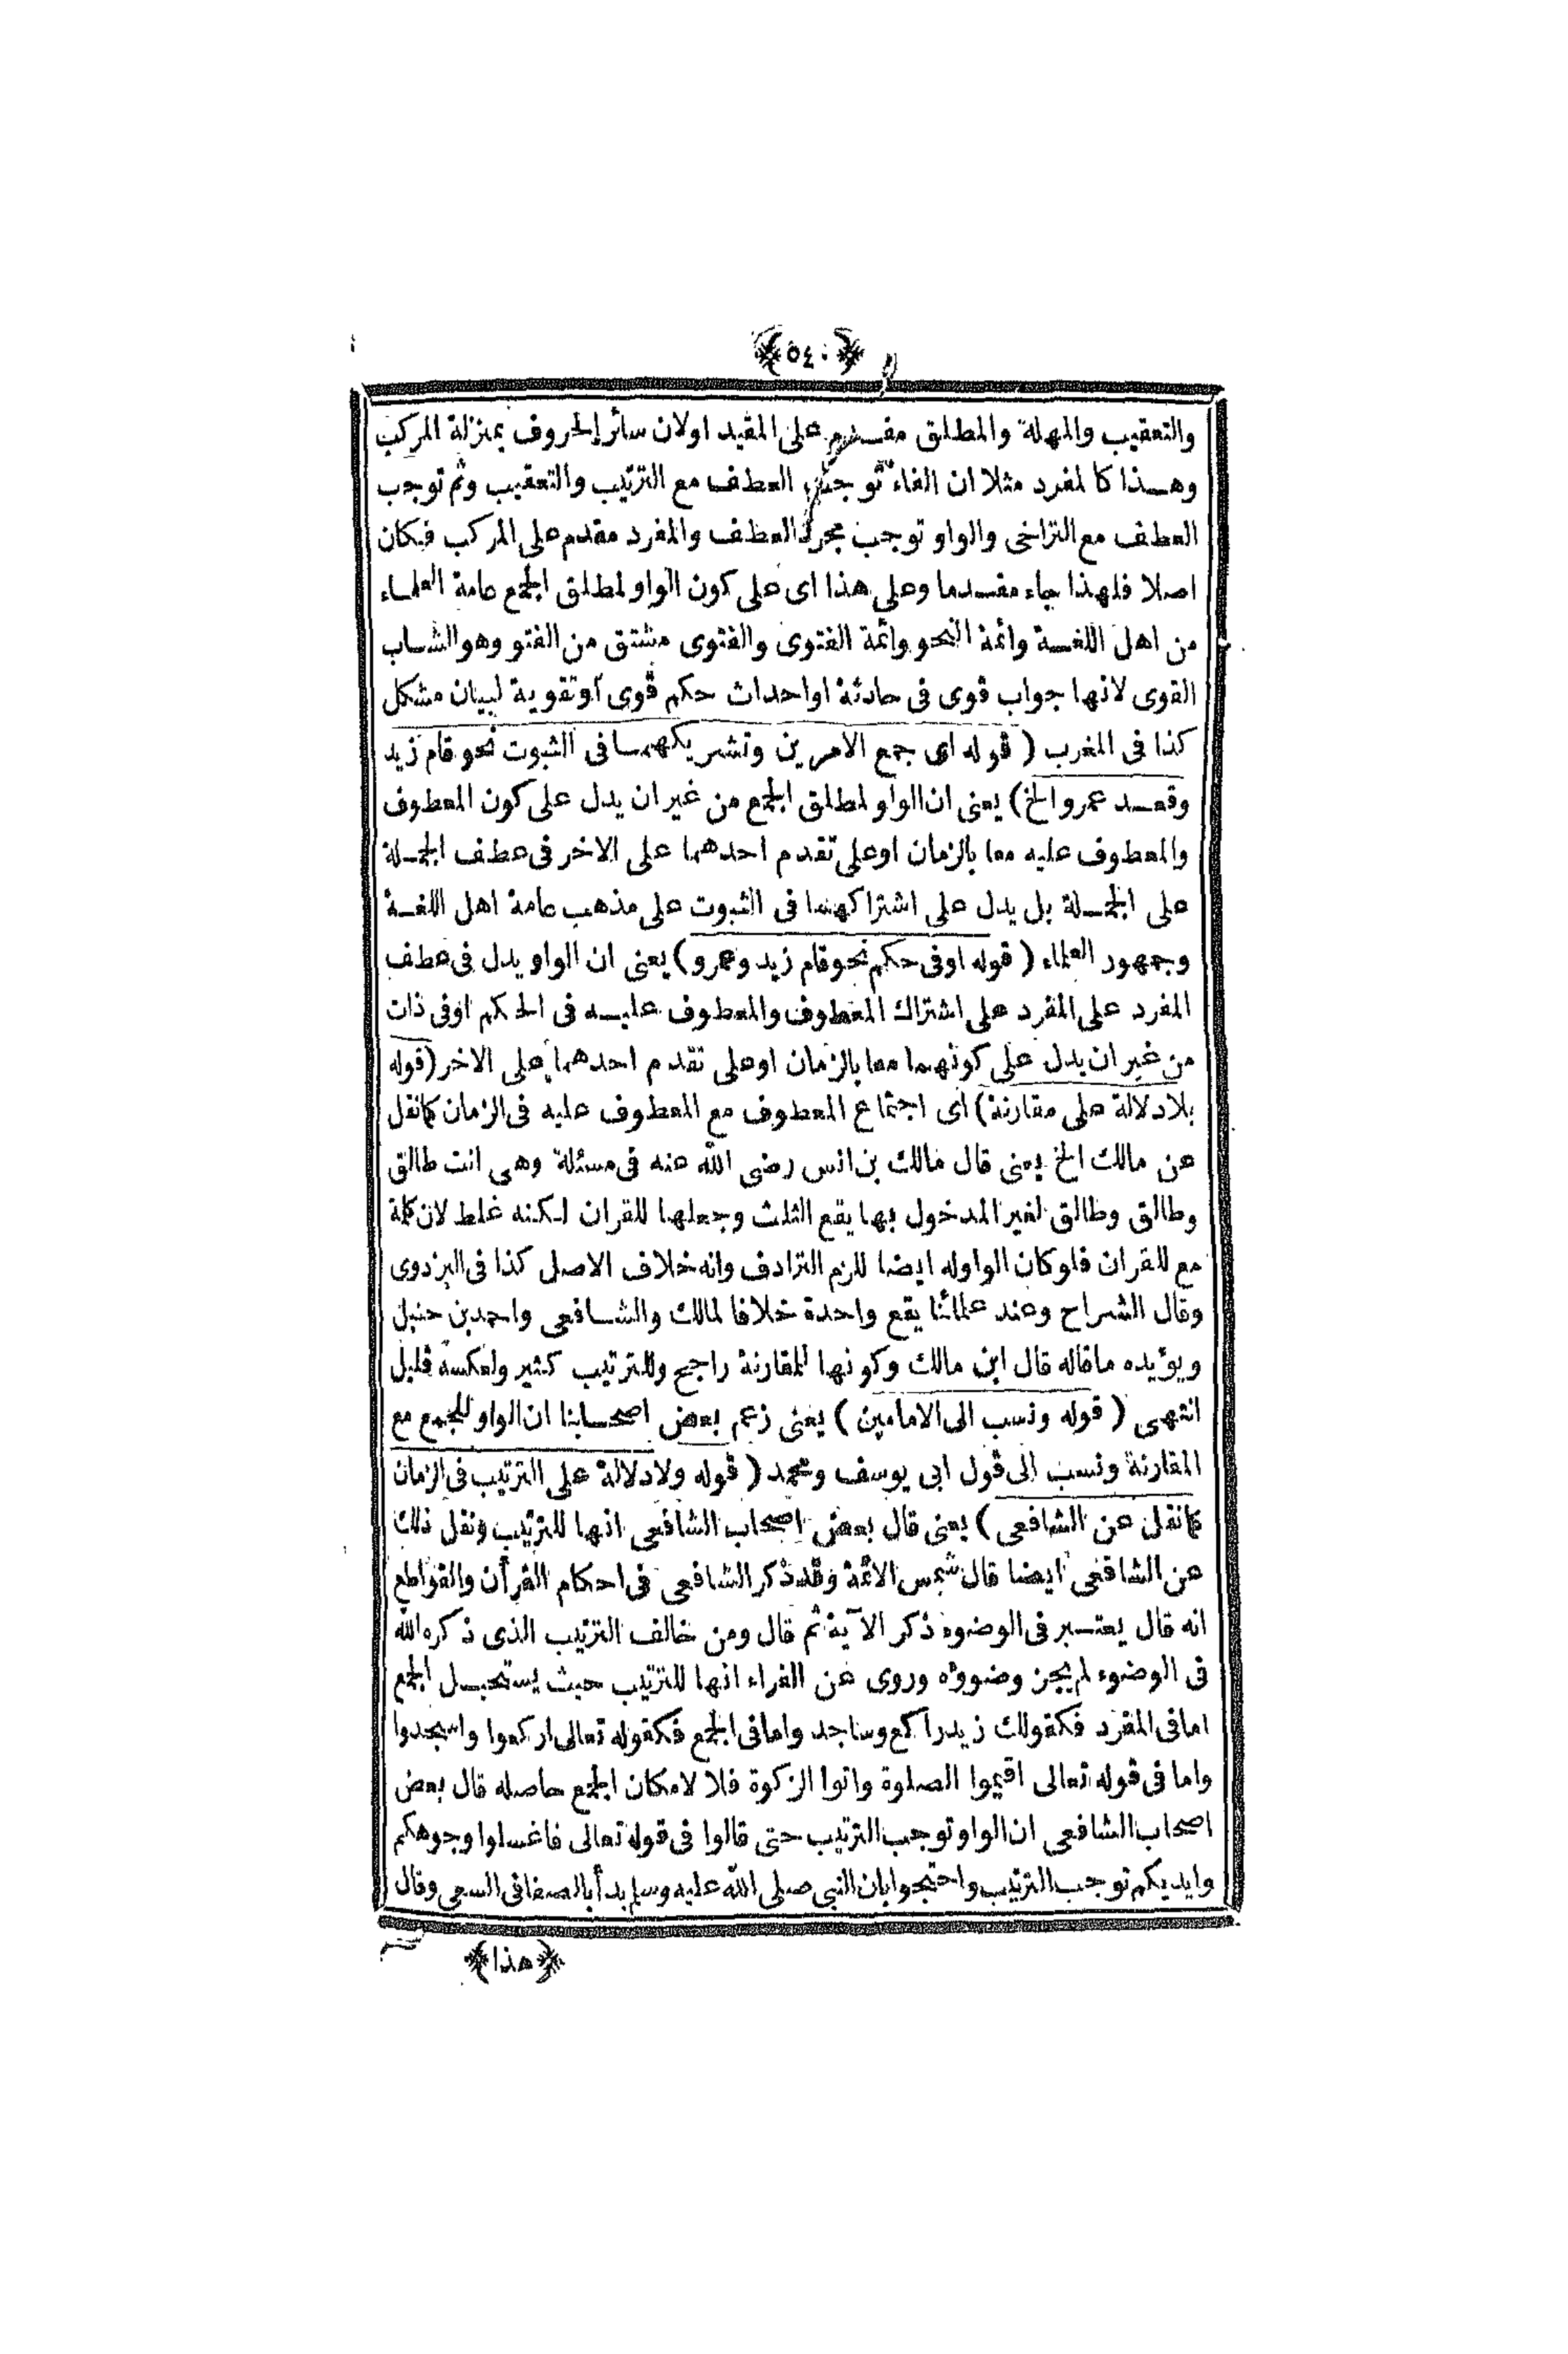 ﴿٥٤٠﴾
والتعقيب والمهلة والمطلق مقدم على المقيد اولان سائر الحروف بمنزلة المركب
وهذا كالمفرد مثلا ان الفاء توجب العطف مع الترتيب والتعقيب وثم توجب
العطف مع التراخى والواو توجب مجرد العطف والمفرد مقدم على المركب فكان
اصلا فلهذا جاء مقدما وعلى هذا اى على كون الواو لمطلق الجمع عامة العلماء
من اهل اللغة وائمة النحو وائمة الفتوى والفتوى مشتق من الفتو وهو الشاب
القوى لانها جواب قوى فى حادثة اواحداث حكم قوى اوتقوية لبيان مشكل
كذا فى المغرب ( قوله اى جمع الامرين وتشريكهما فى الثبوت نحو قام زيد
وقعد عمرو الخ) يعنى ان الواو لمطلق الجمع من غير ان يدل على كون المعطوف
والمعطوف عليه معا بالزمان اوعلى تقدم احدهما على الاخر فى عطف الجملة
على الجملة بل يدل على اشتراكهما فى الثبوت على مذهب عامة اهل اللغة
وجمهور العلماء ( قوله اوفى حكم نحو قام زيد وعمرو) يعنى ان الواو يدل فى عطف
المفرد على المفرد على اشتراك المعطوف والمعطوف عليه فى الحكم اوفى ذات
من غير ان يدل على كونهما معا بالزمان اوعلى تقدم احدهما على الاخر (قوله
بلا دلالة على مقارنة) اى اجتماع المعطوف مع المعطوف عليه فى الزمان كمانقل
عن مالك الخ يعنى قال مالك بن انس رضى الله عنه فى مسئلة وهى انت طالق
وطالق وطالق لغير المدخول بها يقع الثلث وجعلها للقران لكنه غلط لان كلمة
مع للقران فلوكان الواوله ايضا للزم الترادف وانه خلاف الاصل كذا فى البزدوى
وقال الشراح وعند علمائنا يقع واحدة خلافا لمالك والشافعى واحمد بن حنبل
ويؤيده ماقاله قال ابن مالك وكونها للمقارنة راجح وللترتيب كثير ولعكسه قليل
انتهى ( قوله ونسب الى الامامين ) يعنى زعم بعض اصحابنا ان الواو للجمع مع
المقارنة ونسب الى قول ابى يوسف ومحمد ( قوله ولادلالة على الترتيب فى الزمان
كمانقل عن الشافعى ) يعنى قال بعض اصحاب الشافعى انها للترتيب ونقل ذلك
عن الشافعى ايضا قال شمس الائمة وقد ذكر الشافعى فى احكام القرأن والقواطع
انه قال يعتبر فى الوضوء ذكر الآية ثم قال ومن خالف الترتيب الذى ذكره الله
فى الوضوء لم يجز وضووؤه وروى عن الفراء انها للترتيب حيث يستحيل الجمع
امافى المفرد فكقولك زيد راكع وساجد وامافى الجمع فكقوله تعالى اركعوا واسجدوا
واما فى قوله تعالى اقيموا الصلوة واتوا الزكوة فلا لامكان الجمع حاصله قال بعض
اصحاب الشافعى ان الواو توجب الترتيب حتى قالوا فى قوله تعالى فاغسلوا وجوهكم
وايديكم توجب الترتيب واحتجوا بان النبى صلى الله عليه وسلم بدأ بالصفا فى السعى وقال
﴿هذا﴾